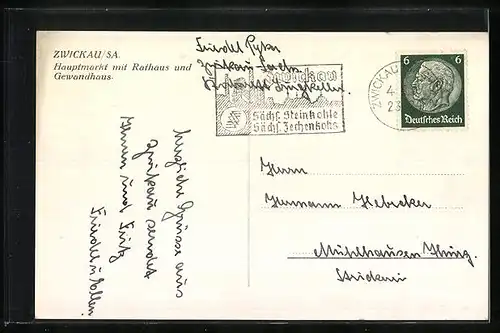 ZWICKAU/SA.
Hauptmarkt mit Rathaus und
Gewandhaus.
Friedel
Zwickau Sachs.
Zwickau
Sächs. Steinkohle
Sächs. Zechenkoks
ZWICKAU
4
23
6 6
Deutsches Reich
Herzliche Grüsse aus
Zwickau sendet
Ihnen und Fritz
Friedel u.
Herrn
Hermann Hebecker
Mühlhausen Thürg.
Strickerei